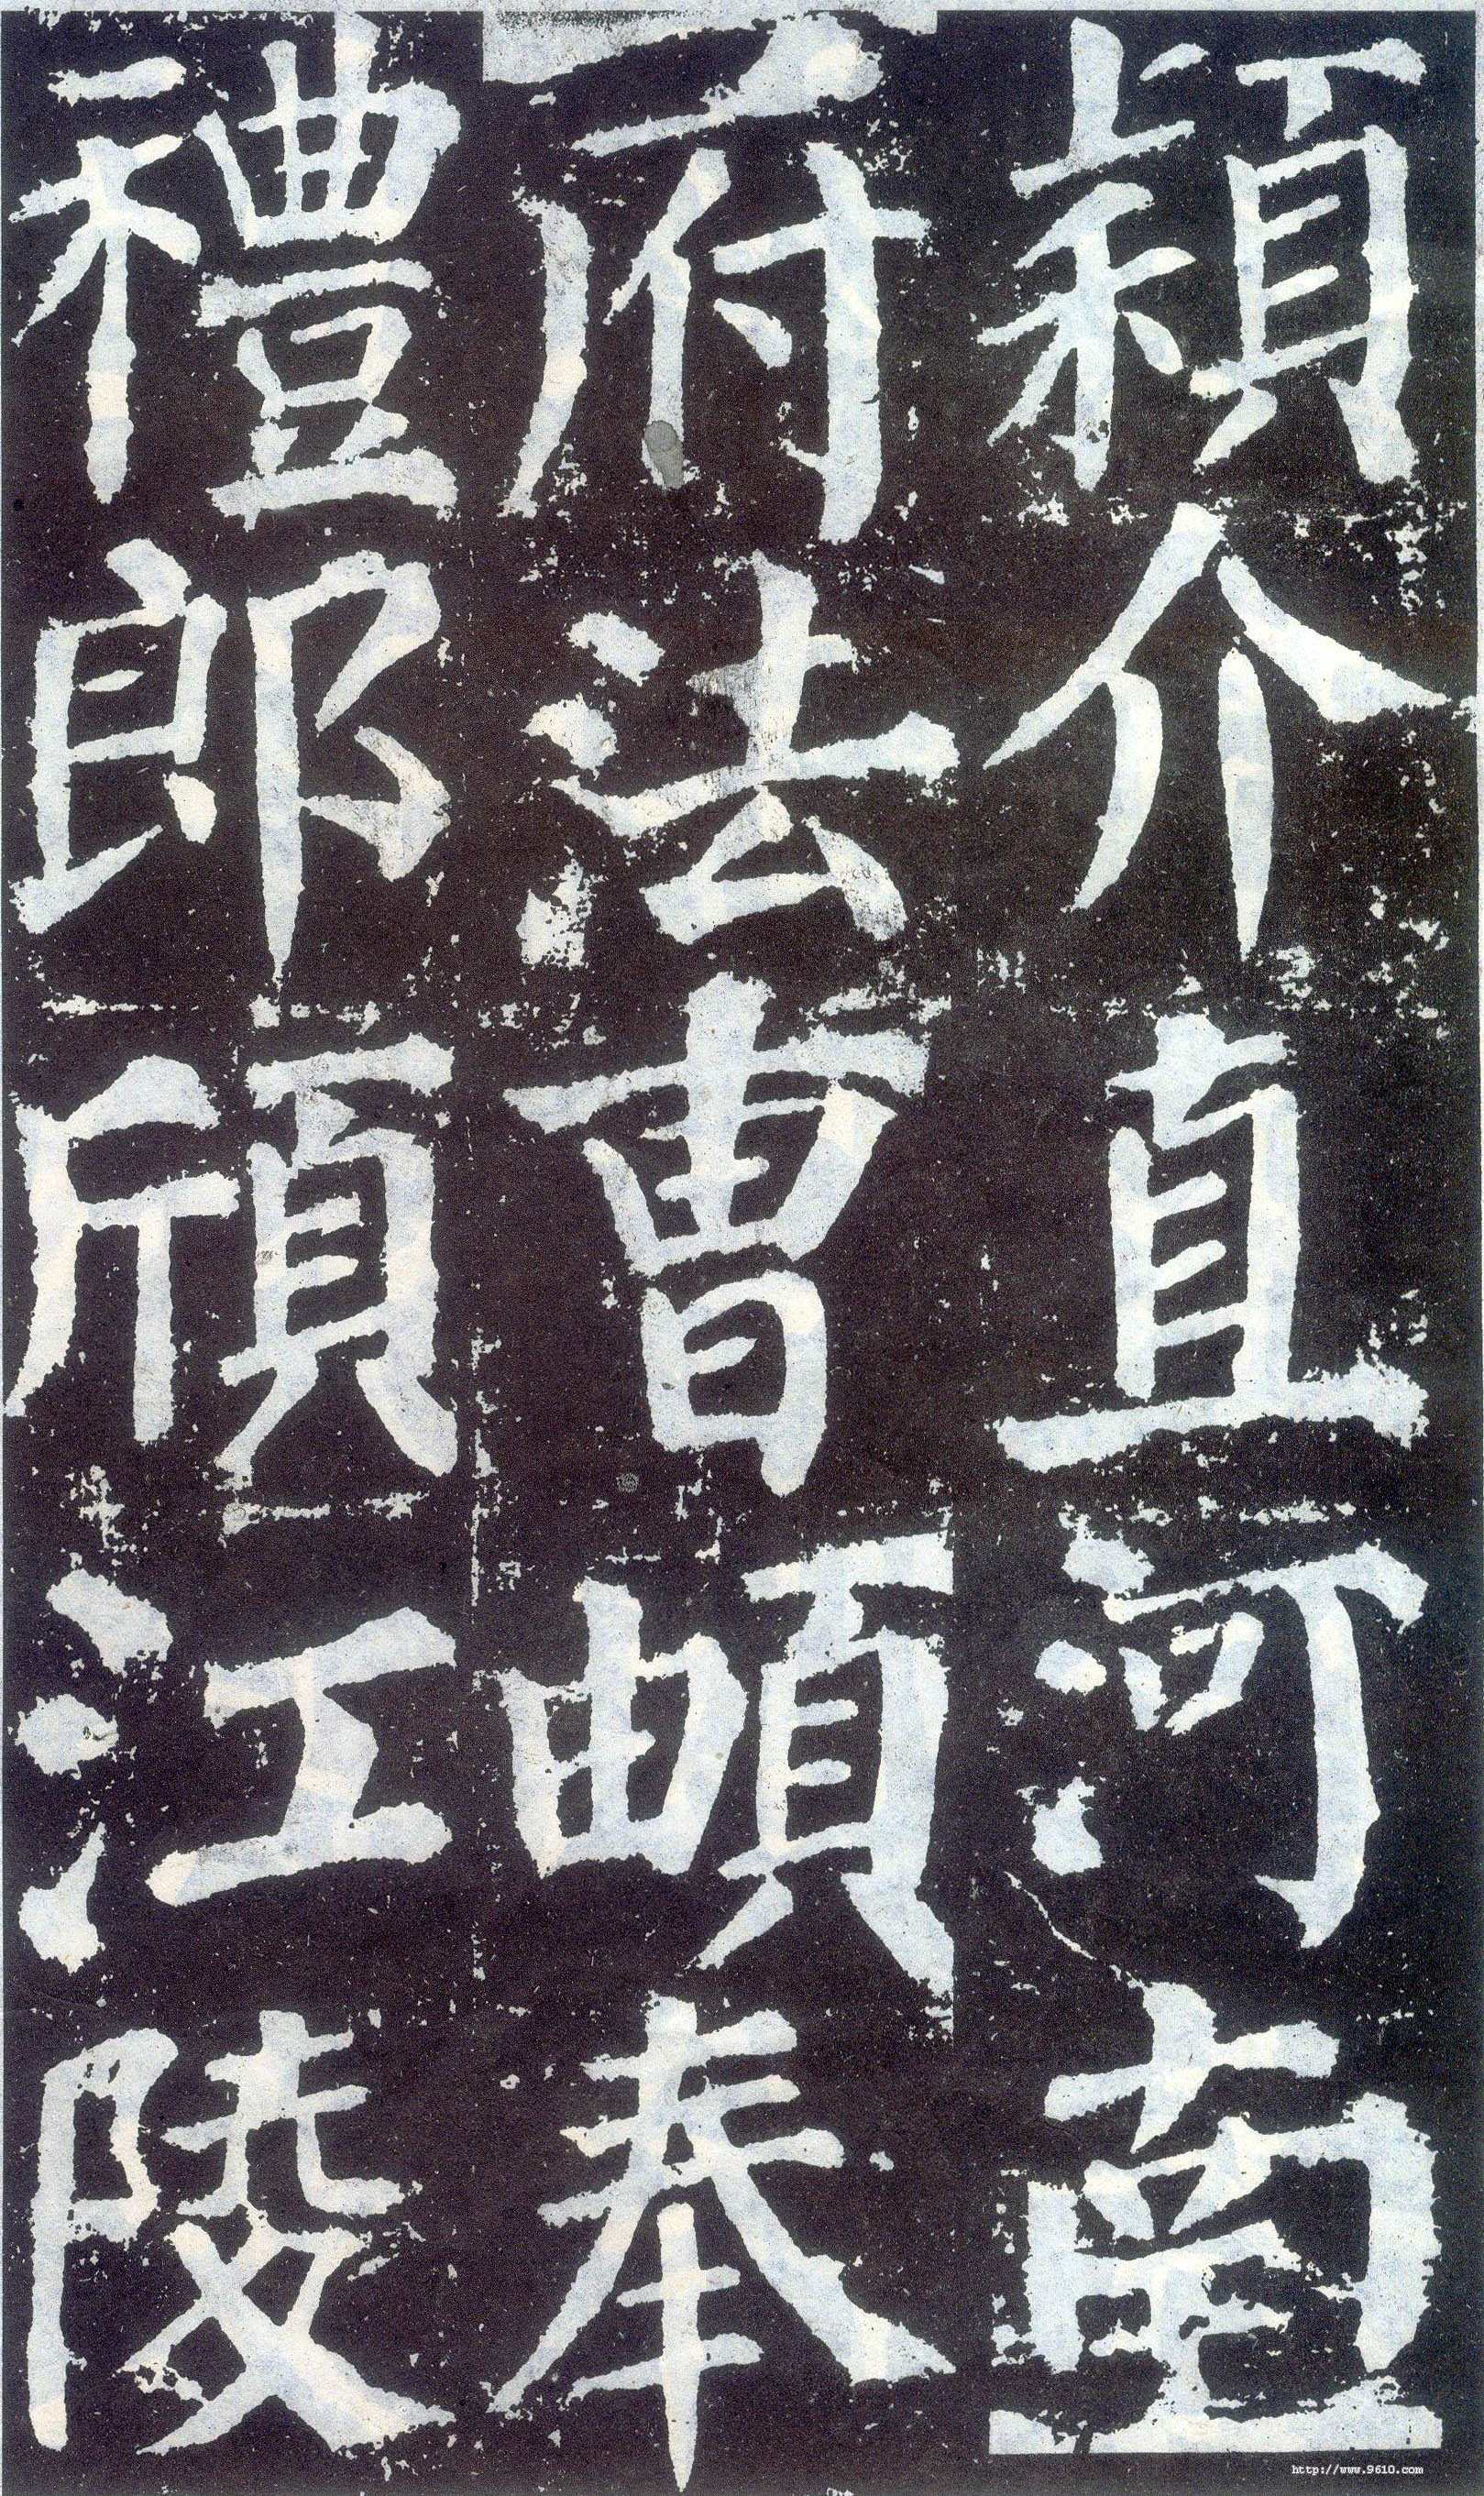 穎介直河南
府法曹頔奉
禮郎頎江陵
http://www.9610.com